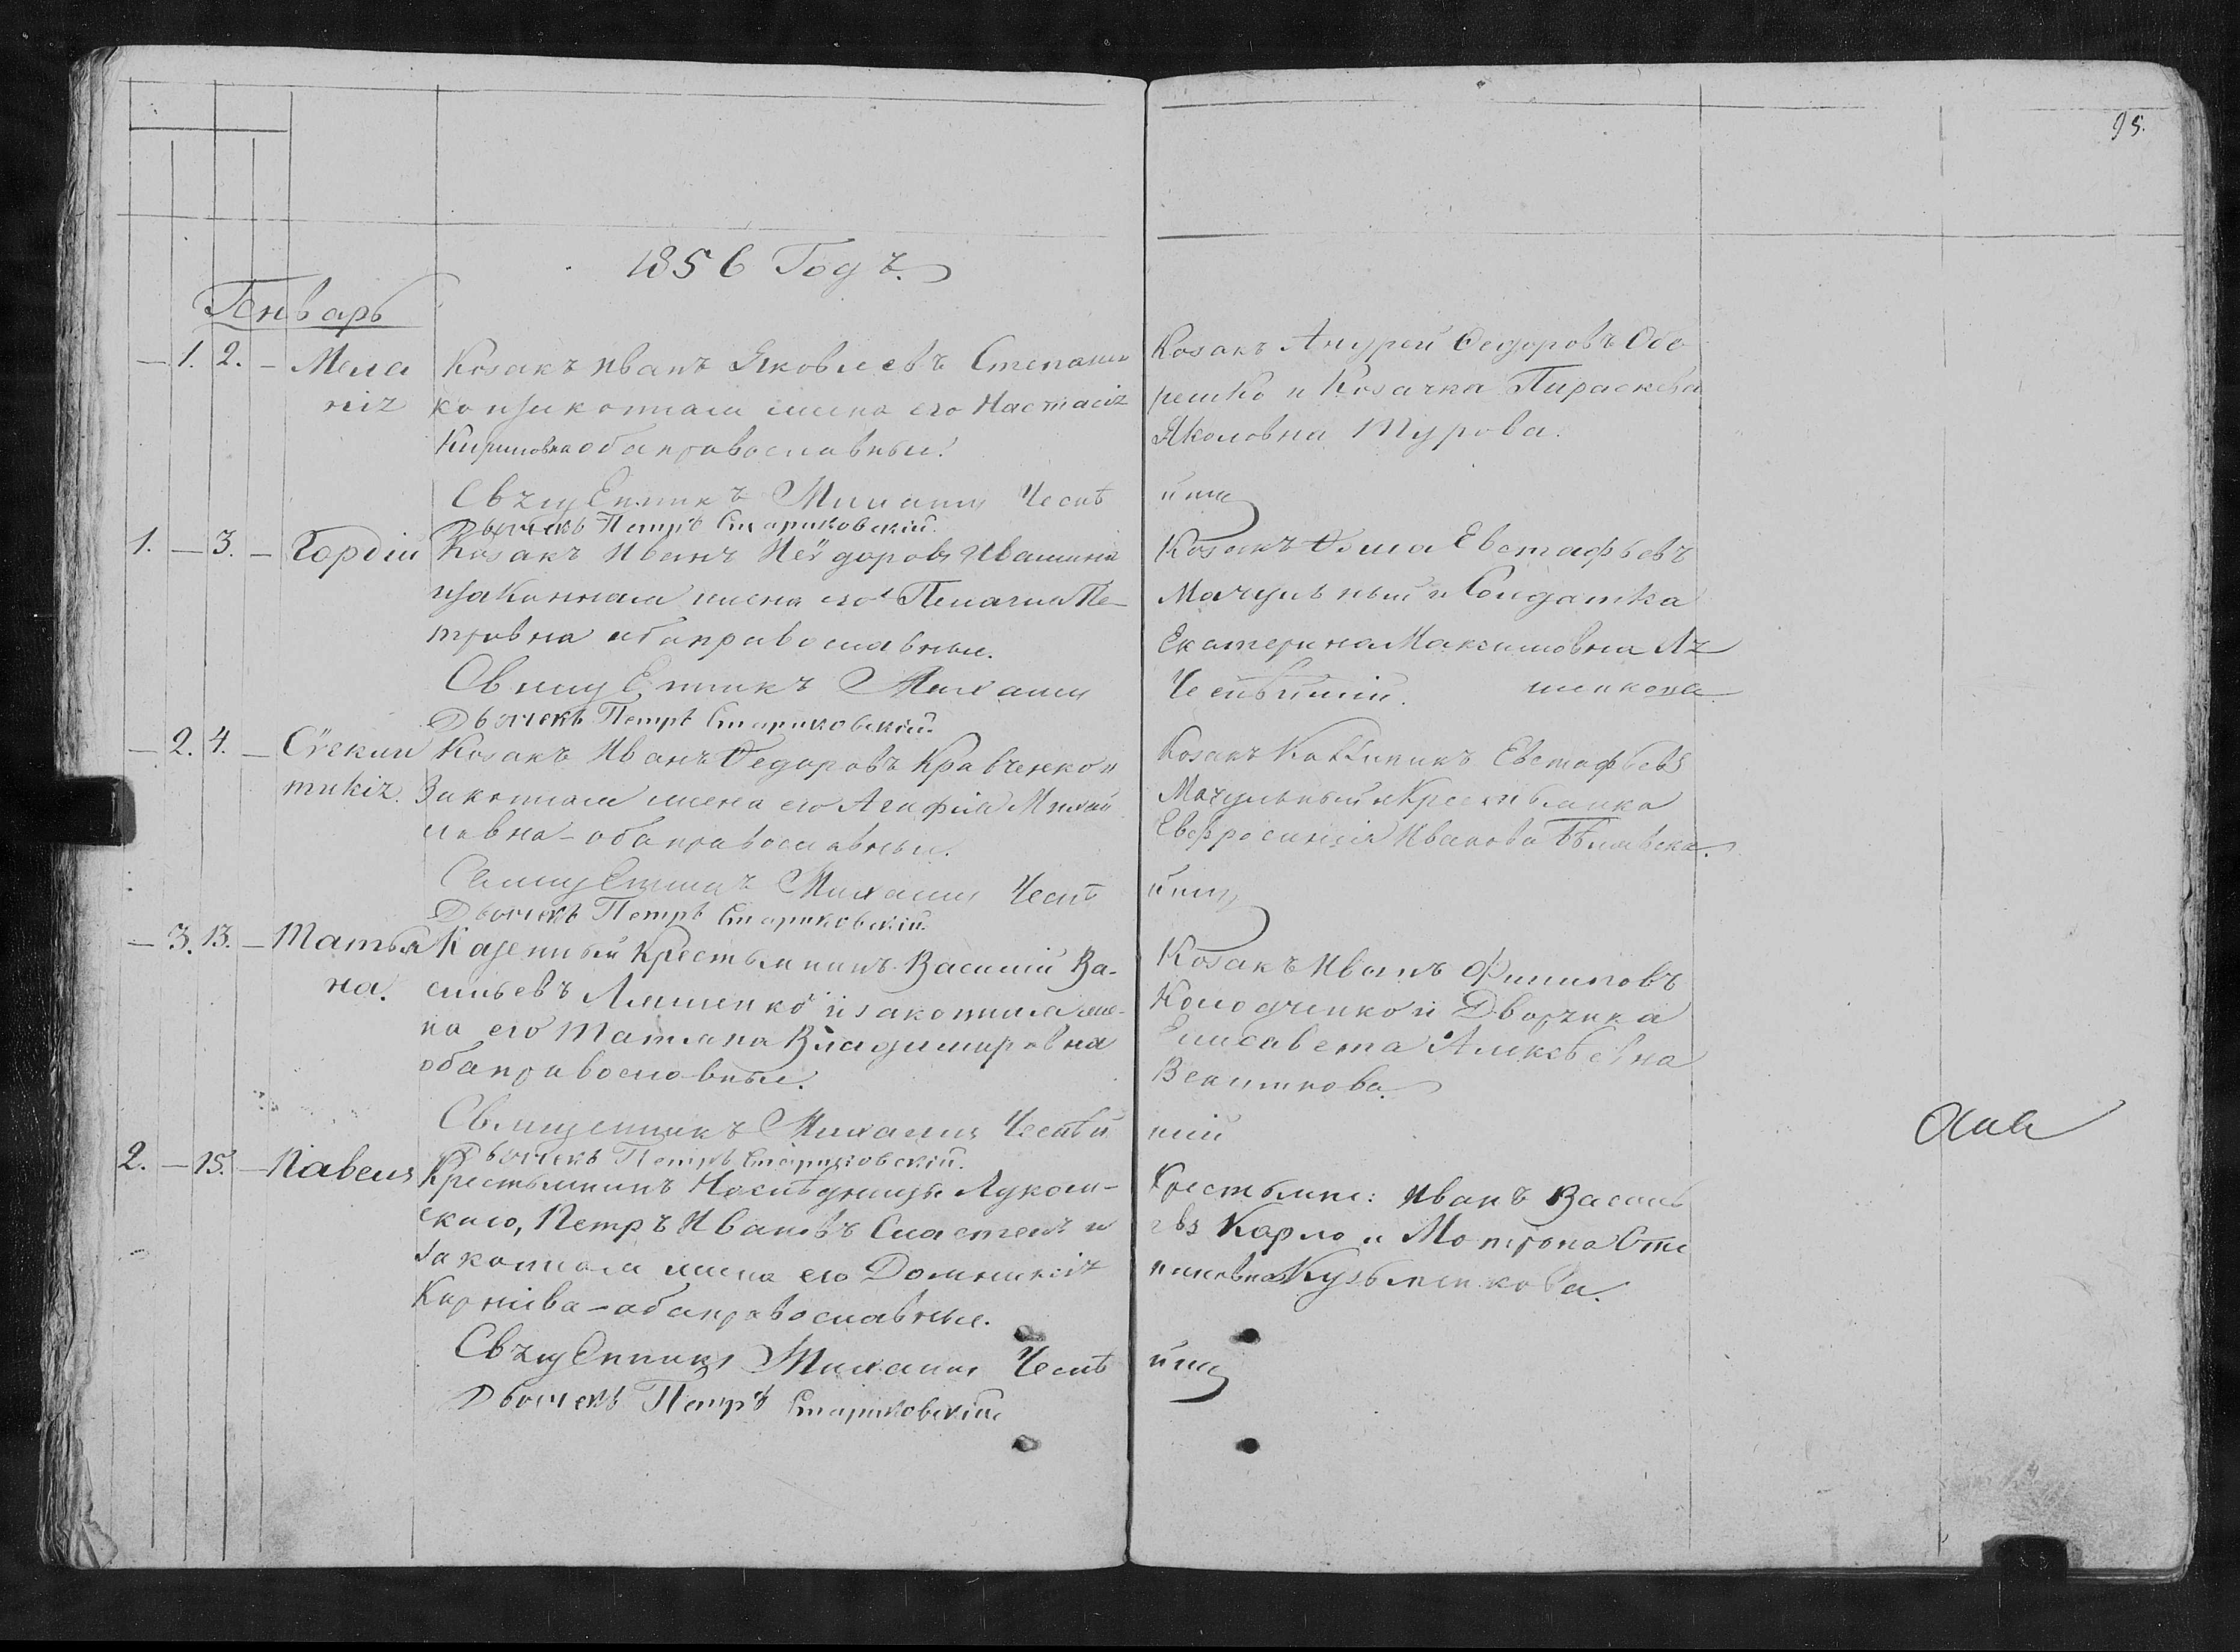 95.
1856 Годъ.
Генварь
1. 2. Мела
нія
Козакъ Иванъ Яковлевъ Степанен
ко и законная жена его Настасія
Кириловна оба православные.
Священникъ Михаилъ Чеснѣ
Дьячекъ Петръ Стариковскій.
Козакъ Андрей Федоровъ Обо
решко и Козачка Параскева
Яковловна Турова.
1. 3. Гордій
Козакъ Иванъ Ивашина
и законная жена его Пелагия Пе-
тровна оба православные.
Священникъ Михаилъ
Дьячекъ Петръ Стариковскій.
Козакъ Фома Евстафьевъ
Мачульный и Солдатка
Екатерина Максимовна Ля
шенкова
2. 4.
Козакъ Иванъ Федоровъ Кравченко и
Законная жена его Агафія Михай
ловна - оба православные.
Священникъ Михаилъ Чеснѣ
Дьячекъ Петръ Стариковскій.
Козакъ Евстафьевъ
Мачульный и Крестьянка
Евфросинія Иванова
3. 13. Татья
на.
Казенный Крестьянинъ Василій Ва-
сильевъ Ляшенко и законная же-
на его Татіана Владимировна
оба православные.
Священникъ Михаилъ Чеснѣй
Дьячекъ Петръ Стариковскій.
Козакъ Иванъ Филиповъ
Колодченко и Дворянка
Елисавета Алексѣевна
2. 15. Павелъ
Крестьянинъ Наслѣдницы Луком-
скаго, Петръ Ивановъ Сластенъ и
законная жена его Домникія
Карпіева - оба православные.
Священникъ Михаилъ Чеснѣ
Дьячекъ Петръ Стариковскій
Крестьяне: Иванъ Василь
евъ Карло и Мотрона Сте
пановна Кузьменкова.